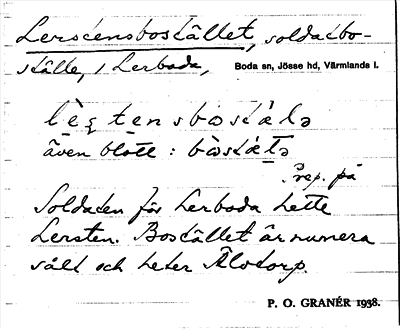 Lerstensbostället, soldatbo-
ställe, i Lerboda, Boda sn, Jösse hd, Värmlands l.
även blott :
Prep. på
Soldaten för Lerboda hette
Lersten. Bostället är numera
sålt och heter Älvtorp.
P. O. GRANÉR 1938.